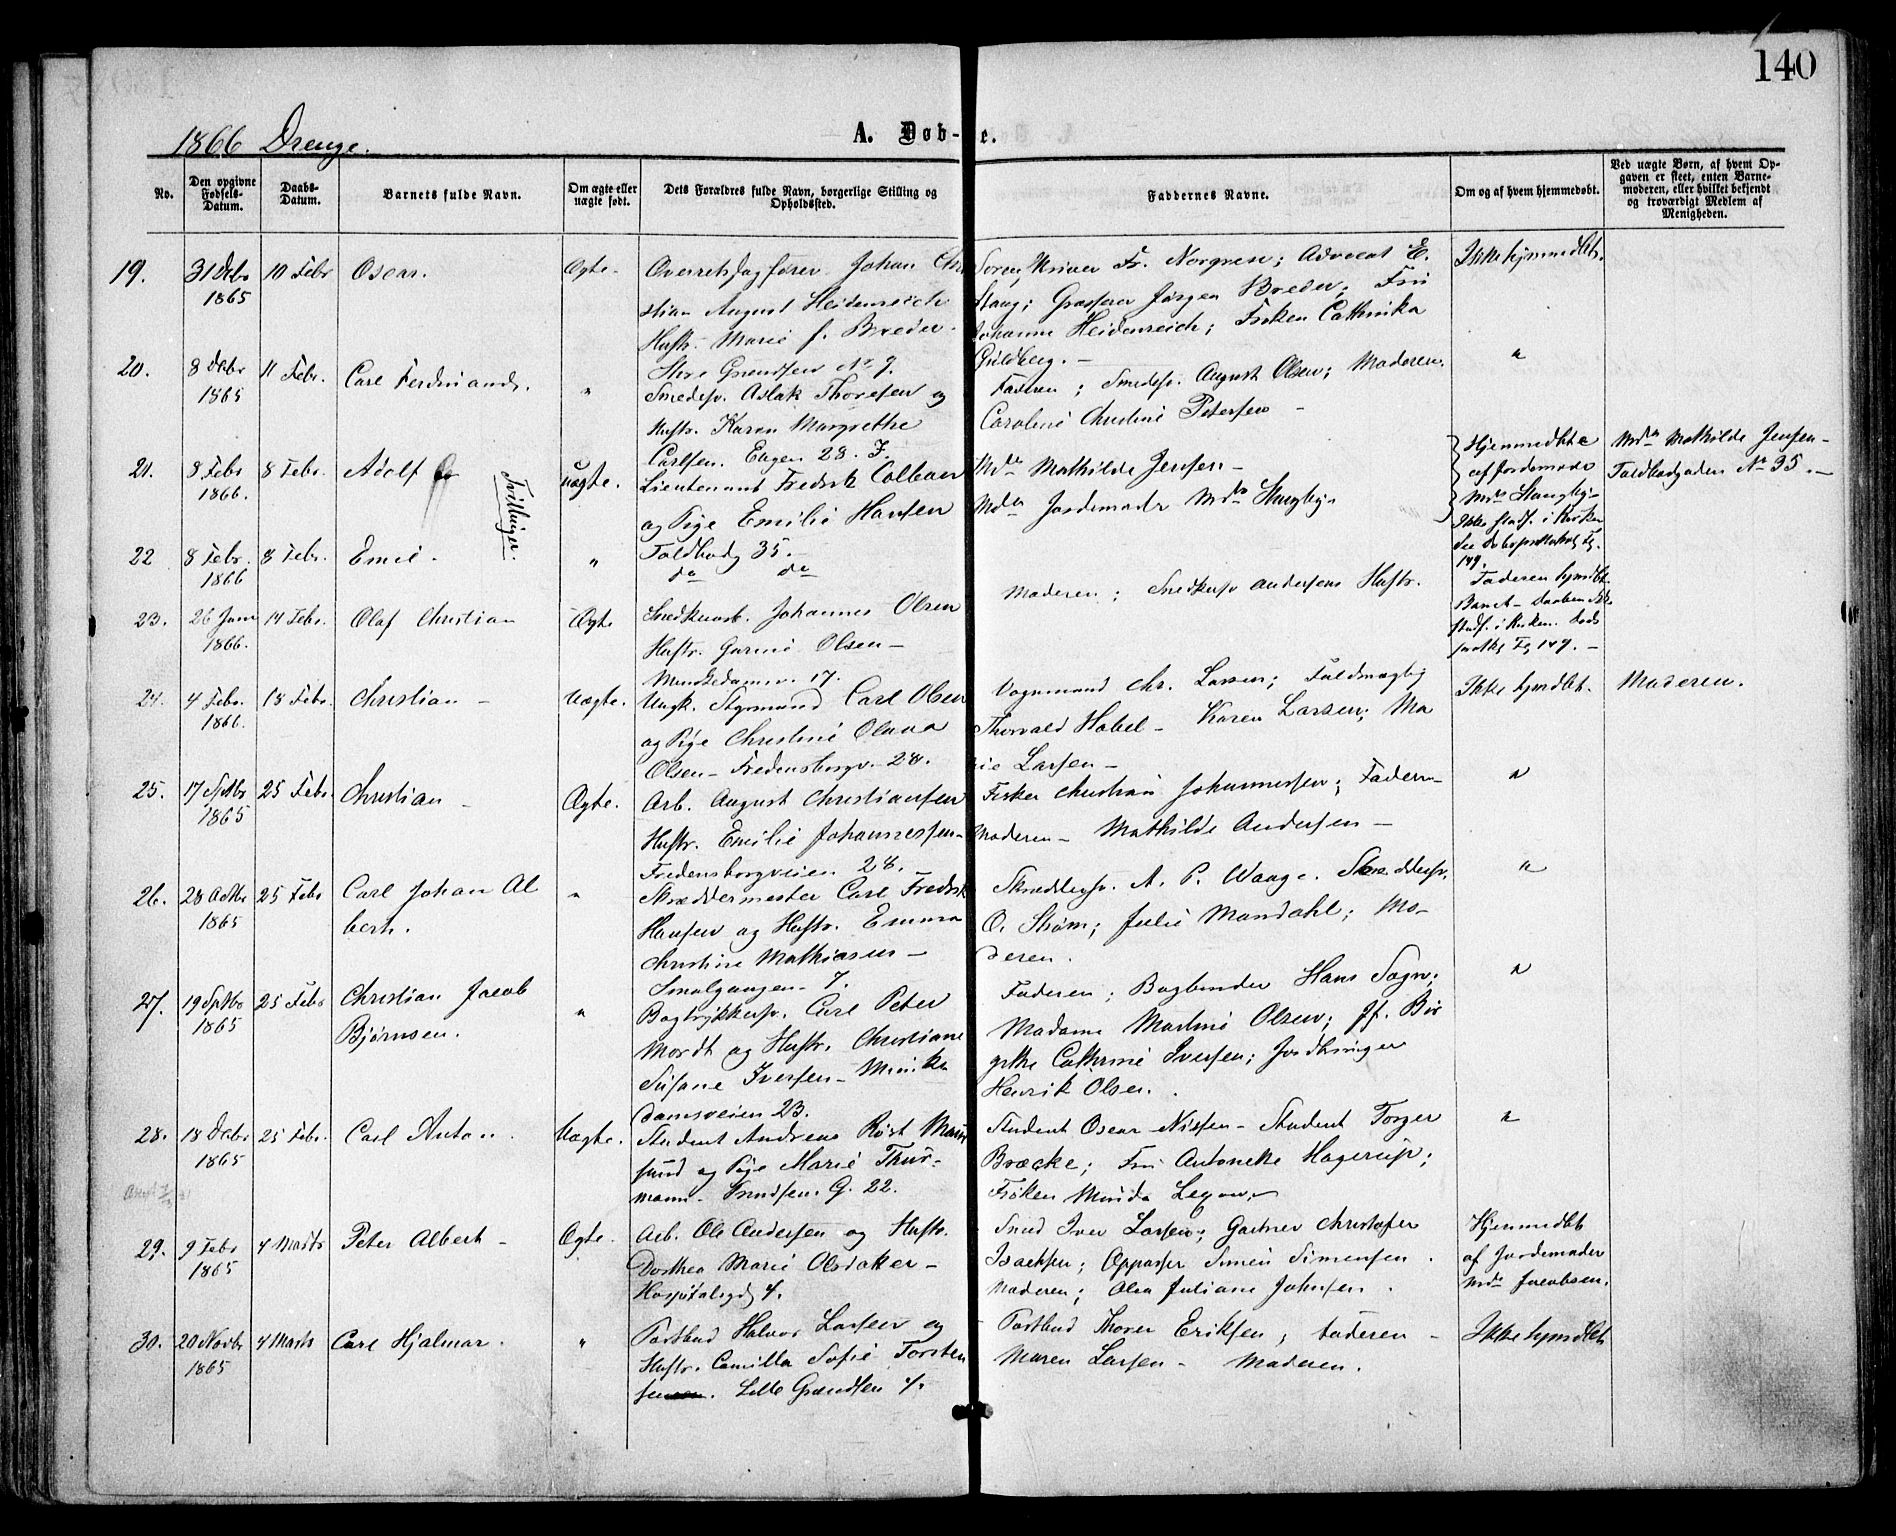 140
1866 Drenge.
A. Døb-e.
No.
Den opgivne Fødsels-Datum.
Daabs-Datum.
Barnets fulde Navn.
Om ægte eller uægte født.
Dets Forældres fulde Navn, borgerlige Stilling og Opholdssted.
Faddernes Navne.
Om og af hvem hjemmedøbt.
Ved uægte Børn, af hvem Opgaven er skeet, enten Barnemoderen, eller hvilket bekjendt og troværdigt Medlem af Menigheden.
19. 31 Debr 10 Febr Oscar. Ægte. Overretssagfører Johan Chri Sorenskriver Fr. Norgren; Advocat E. Ikke hjmmedbt.
1865 stian August Heidenreich Stang; Grosserer Jørgen Breder; Fru
Hustr. Marie f. Breder. Johanne Heidenreich; Frøken Cathinka
Store Grændsen No 9. Guldberg. —
20. 8 Debr 11 Febr. Carl Ferdinand. " Smedesv. Aslak Thoresen og Faderen; Smedesv. August Olsen; Moderen. "
1865 Hustr. Karen Margrethe Caroline Christine Petersen —
Carlsen. Engen 28. F.
21. 8 Febr 8 Febr. Adolf Tvillinger. uægte. Lieutenant Fredrik Colban Mdm Mathilde Jensen — Hjemmedbte Mdm Mathilde Jensen —
1866. og Pige Emilie Hansen Mdm Jordemoder Mdm Stangby af Jordemoder Toldbodgaden No 35. —
Toldbodg 35. — Mdm Stangby —
Ikke stadf. i Kirken
22 8 Febr. 8 Febr. Emil. " do do
1866 149.
23. 26 Janr 14 Febr. Olaf Christian Ægte Snedkerarb. Johannes Olsen Moderen; Snedkersv Andersens Hustr. Faderen hjmdbt
1866. Hustr. Gurine Olsen — Barnet —
Munkedamsv. 17.
24. 4 Febr. 18 Febr. Christian — Uægte. Ungk. Styrmand Carl Olsen Vognmand Chr. Larsen; Fuldmægtig Ikke hjmdbt. Moderen.
1866. og Pige Christine Olava Thorvald Habel — Karen Larsen; Ma
Olsen — Fredensborgv. 28. rie Larsen —
25. 17 Septbr 25 Febr. Christian — Ægte. Arb. August Christiansen Fisker Christian Johannessen; Faderen "
1865 Hustr. Emilie Johannessen — Moderen — Mathilde Andersen —
Fredensborgveien 28.
26. 28 Octbr 25 Febr Carl Johan Al " Skræddermester Carl Fredrik Skræddersv. A. P. Waage. Skræddersv. "
1865 bert. Hansen og Hustr. Emma O. Strøm; Julie Mandahl; Mo-
Christine Mathiasen — deren.
Smalgangen 7.
27. 19 Septbr 25 Febr Christian Jacob " Bogtrykkersv. Carl Peter Faderen; Bogbinder Hans Sogn; "
1865 Bjørnsen. Mordt og Hustr. Christiane Madame Martine Olsen; Jf. Bir
Susane Iversen — Munke gitte Cathrine Iversen;
damsveien 23. Henrik Olsen.
28. 18 Debr 25 Febr. Carl Anton. Uægte. Student Andreas Røst Student Oscar Nissen — Student Torger "
1865 og Pige Marie Thur- Bræcke; Fru Antonette Hagerup;
mann — Grændsen. G. 22. Frøken Minda Lexow. —
29. 9 Febr 4 Marts Peter Albert — Ægte. Arb. Ole Andersen og Hustr. Smed Iver Larsen; Gartner Christofer Hjemmedbt
1865 Dorthea Marie Olsdaker — Isachsen; Oppasser Simen Simensen. af Jordemoder
Hospitalsgd 4. Moderen; Olea Juliane Johnsen. Mdm Jacobsen.
30. 20 Novbr 4 Marts Carl Hjalmar. " Postbud Halvor Larsen og Postbud Thorer Eriksen; Faderen — Ikke hjmdbt
1865 Hustr. Camilla Sofie Torsten Maren Larsen — Moderen.
sen. Lille Grændsen 4.